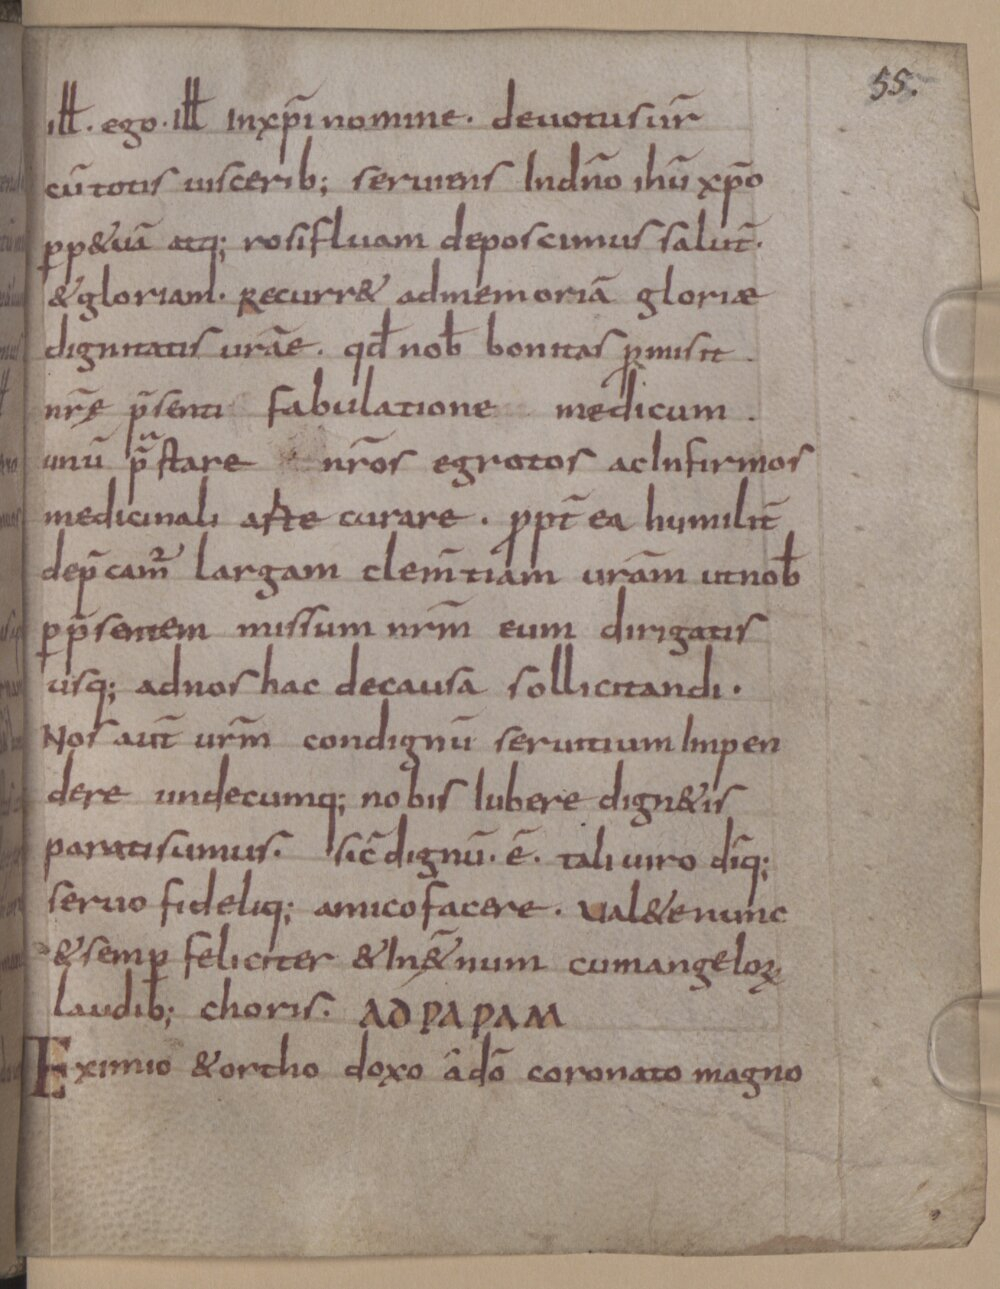 55.
ill̅. ego. ill̅ Inxp̅i nomine. deuotus ur̅
cū totis uiscerib; seruiens In dn̅o ihū xp̅o
ꝑp&uā atq; rosifluam deposcimus salut̅.
& gloriam. Recurr& ad memoriā gloriæ
dignitatis urāe. qđ noƀ bonitas ꝓmisit.
nr̅ę p̅senti fabulatione medicum.
unū p̅stare nr̅os egrotos ac Infirmos
medicinali arte curare. ꝓpt̅ ea humilit̅
dep̅cam̅ largam clem̅tiam urām ut noƀ
ꝑ p̅sentem missum nr̅m eum dirigatis
usq; ad nos hac de causa sollicitandi.
Nos aut̅ ur̅m condignū seruitium Impen
dere undecumq; nobis Iubere dign&is
parati sumus. sic̅ dignū. ē. tali uiro diq̅;
seruo fideliq; amico facere. Ual&e nunc
& semꝑ feliciter & In &̅num cum angeloꝝ
laudib; choris. AD PAPAM
Eximio & orthodoxo a d̅o coronato magno